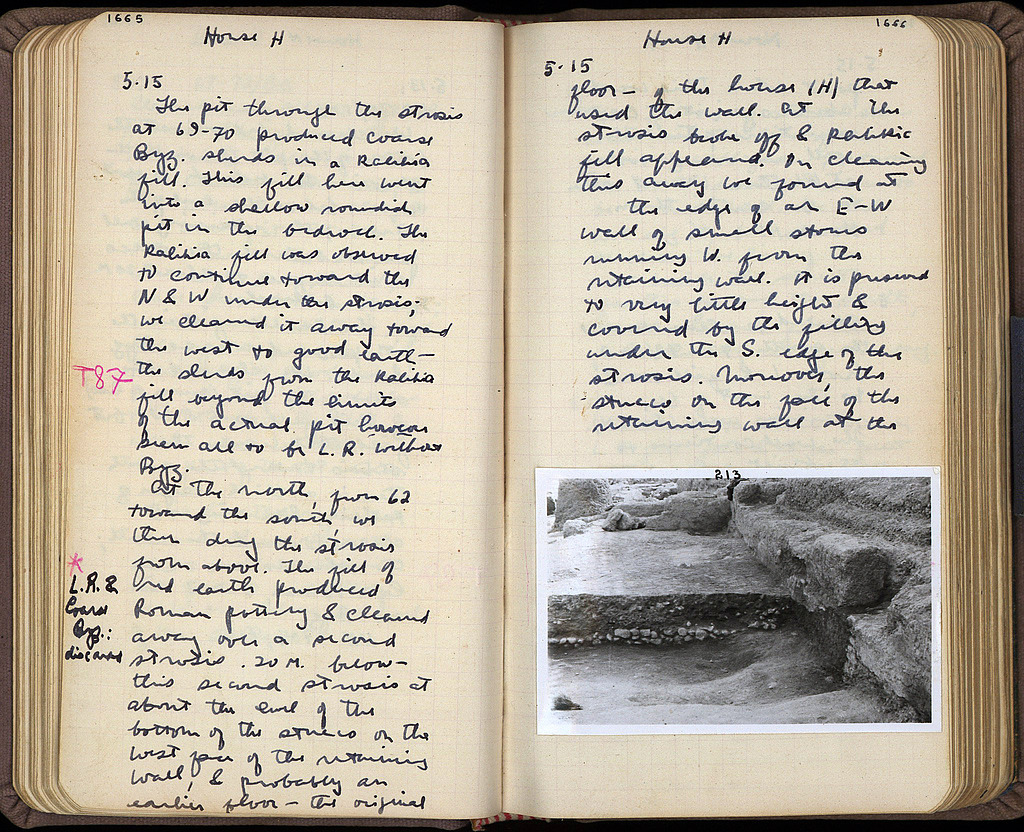 1665
House H
5·15
The pit through the strosis
at 69-70 produced coarse
Byz. sherds in a Kalikia
fill. This fill here went
into a shallow roundish
pit in the bedrock. The
Kalikia fill was observed
to continue toward the
N & W under the strosis;
we cleared it away toward
the west to good earth –
T87
the sherds from the Kalikia
fill beyond the limits
of the actual pit however
seem all to be L.R. without
Byz.
At the north, from 62
toward the south, we
then dug the strosis
*
from above. The fill of
L.R. &
Coarse
Byz.:
discarded
red earth produced
Roman pottery & cleared
away over a second
strosis .20 M. below –
this second strosis at
about the level of the
bottom of the stucco on the
west face of the retaining
wall, & probably an
earlier floor – the original
1666
House H
5·15
floor – of the house (H) that
used the wall. At the
strosis broke off & Kalikia
fill appeared. In cleaning
this away we found at
the edge of an E-W
wall of small stones
running W. from the
retaining wall. It is preserved
to very little height &
covered by the filling
under the S. edge of the
strosis. Moreover, the
stucco on the face of the
retaining wall at the
213